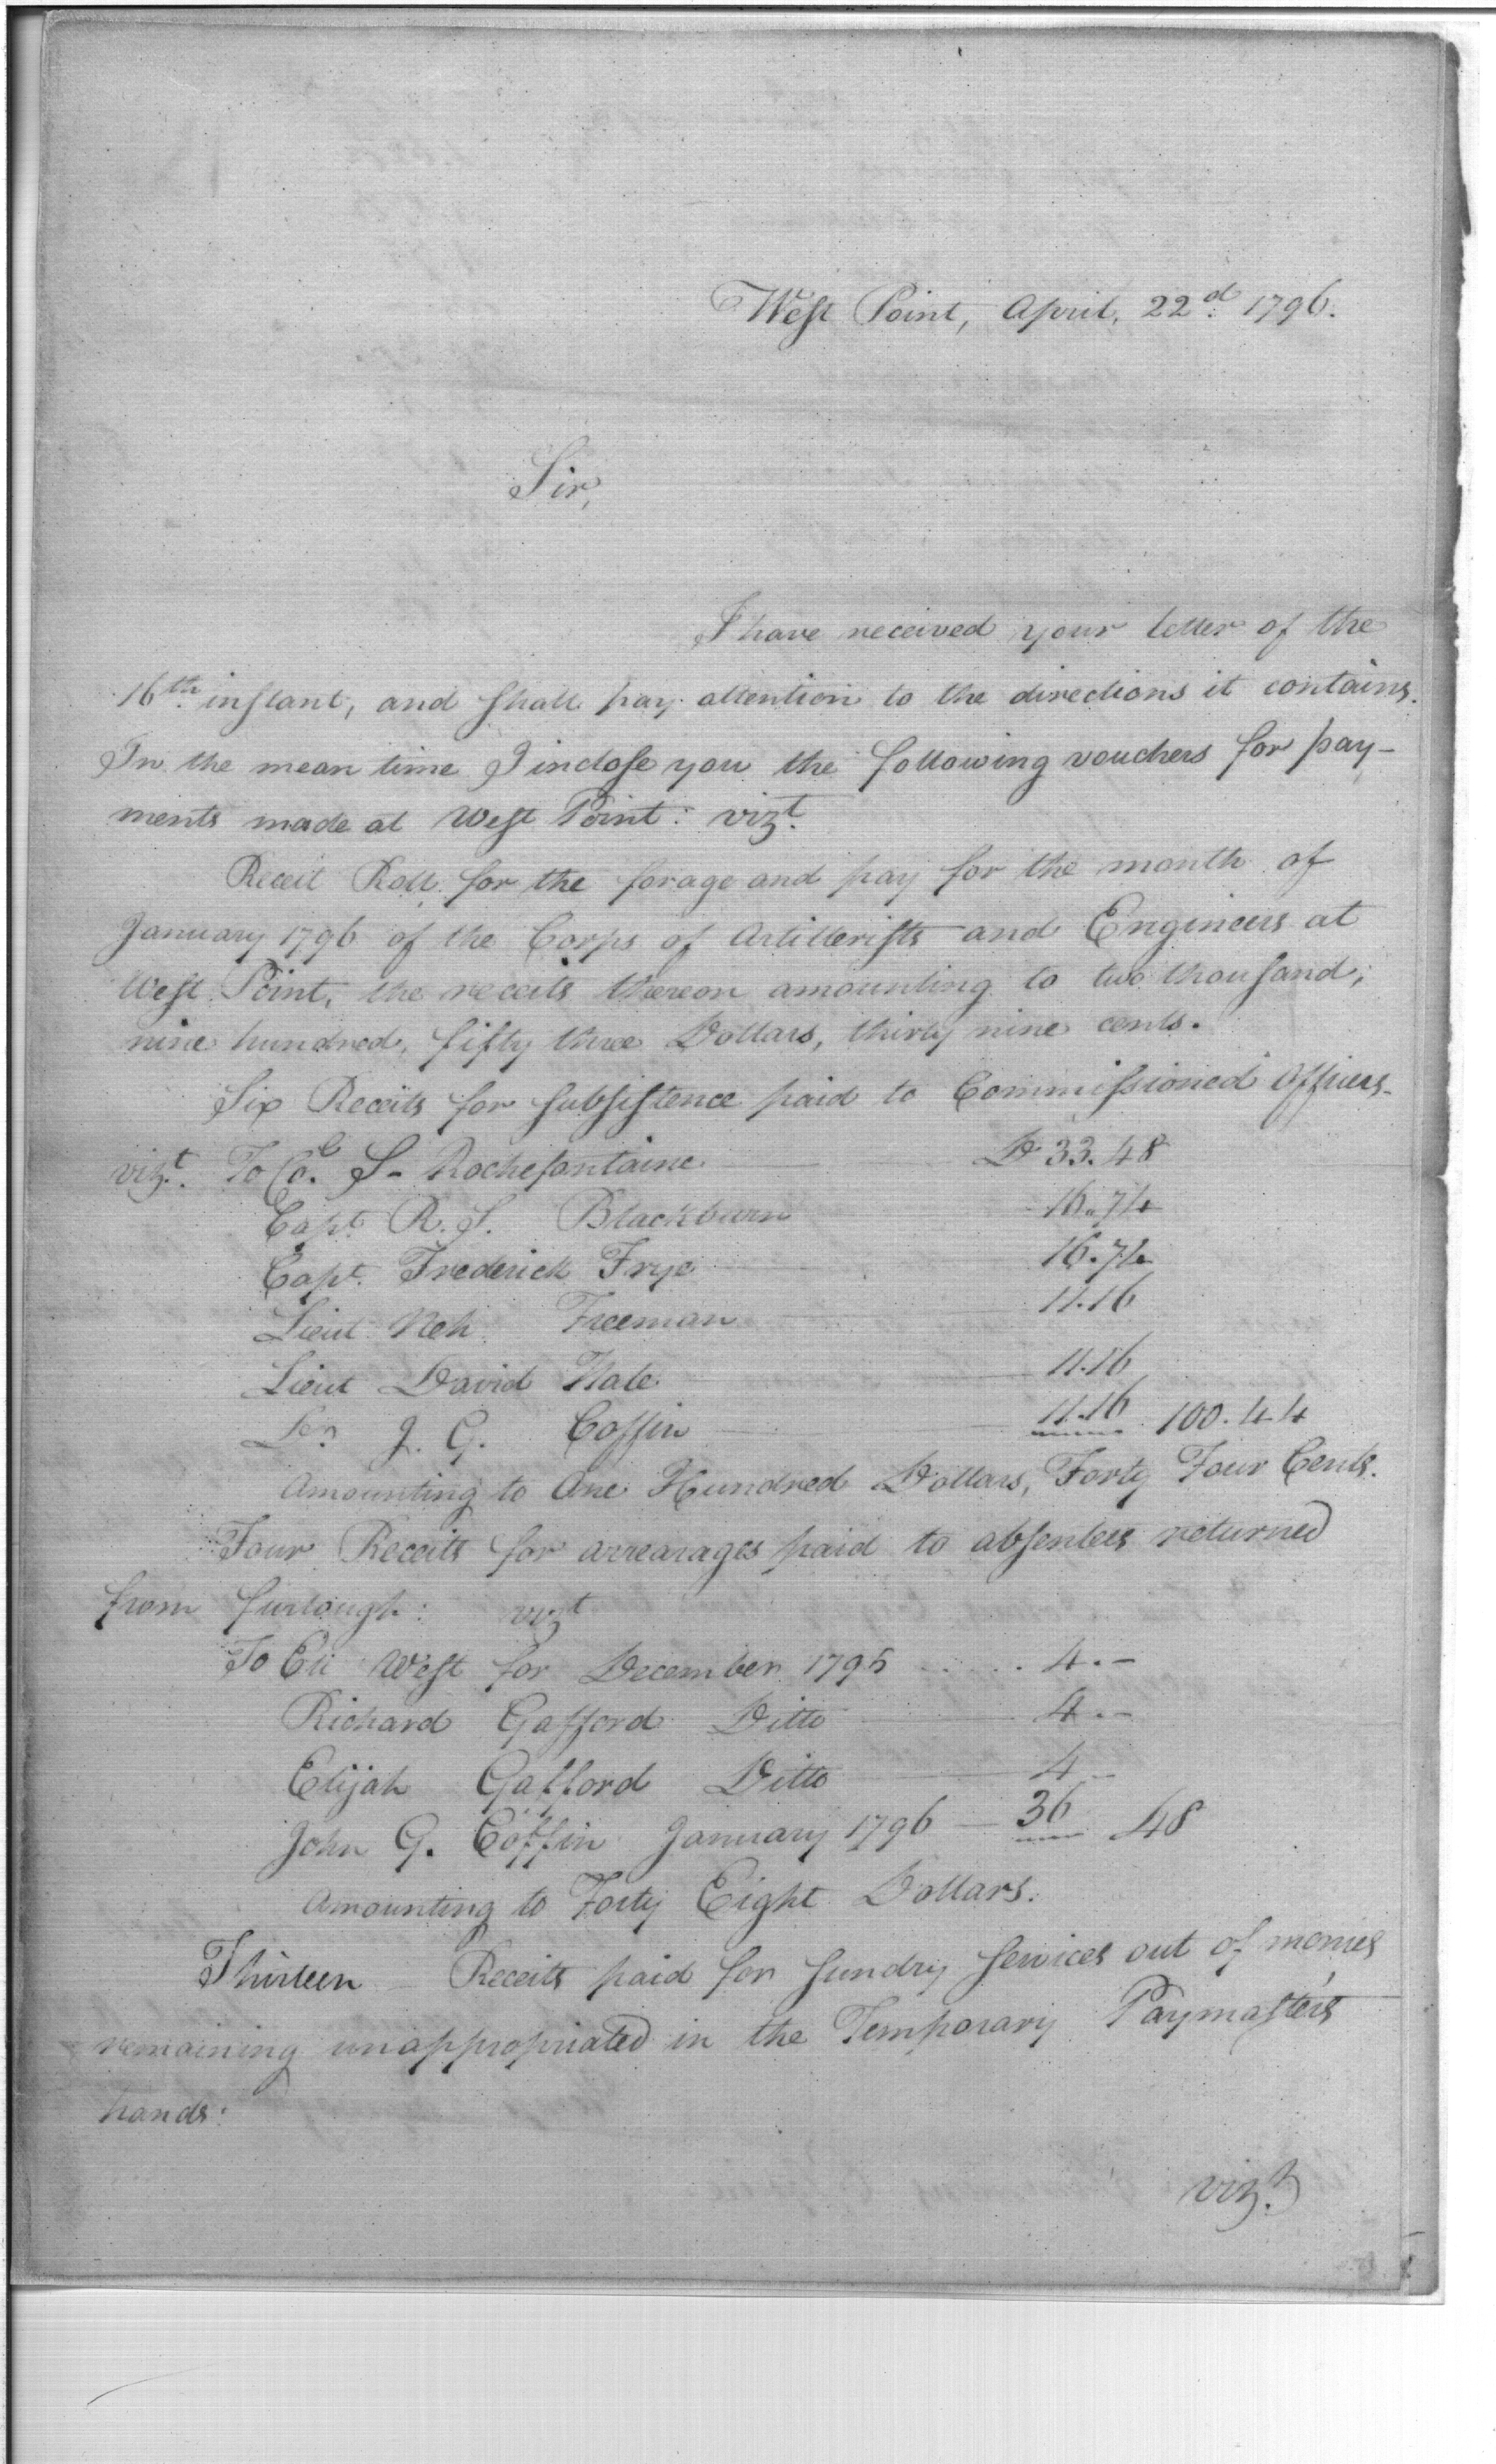 West Point, April, 22d. 1796.
Sir,
I have received your letter of the
16th. instant, and shall pay attention to the directions it contains.
In the mean time I inclose you the following vouchers for pay-
ments made at West Point: vizt.
Receit Roll for the forage and pay for the month of
January 1796 of the Corps of Artillerists and Engineers at
West Point, the receits thereon amounting to two thousand,
nine hundred, fifty three Dollars, thirty nine cents.
Six Receits for subsistence paid to Commissioned Officers-
vizt. To Col. S- Rochefontaine D 33.48
Capt. R. S. Blackburn 16.74
Capt. Frederick Frye 16.74
Lieut Neh Freeman 11.16
Lieut David Hale 11.16
J. G. Coffin 11.16 100.44
Amounting to One Hundred Dollars, Forty Four Cents.
Four Receits for arrearages paid to absentees returned
from furlough: vizt
To Eli West for December 1795 ..... 4.-
Richard Gafford Ditto 4.-
Elijah Gafford Ditto 4-
John G. Coffin January 1796 - 36 48
Amounting to Forty Eight Dollars.
Thirteen - Receits paid for sundry services out of monies
remaining unappropriated in the Temporary Paymaster's
hands:
vizt.